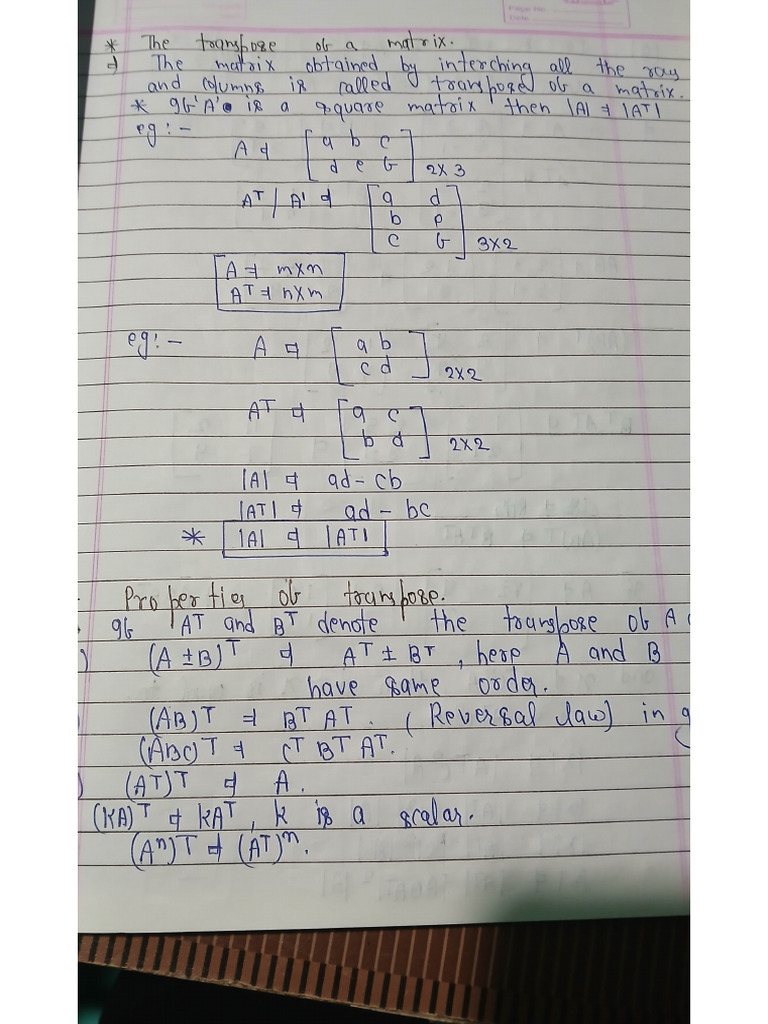 * The transpose of a matrix.
⇒ The matrix obtained by interching all the row
and columns is called transpose of a matrix.
* If 'A' is a square matrix then |A| = |Aᵀ|
eg:-
A = [a b c
d e f] 2x3
Aᵀ / A' = [a d
b e
c f] 3x2
A = m×n
Aᵀ = n×m
eg:- A = [a b
c d] 2x2
Aᵀ = [a c
b d] 2x2
|A| = ad - cb
|Aᵀ| = ad - bc
* |A| = |Aᵀ|
Properties of transpose.
If Aᵀ and Bᵀ denote the transpose of A
(A ± B)ᵀ = Aᵀ ± Bᵀ, here A and B
have same order.
(AB)ᵀ = Bᵀ Aᵀ. (Reversal law) in g
(ABC)ᵀ = Cᵀ Bᵀ Aᵀ.
(Aᵀ)ᵀ = A.
(KA)ᵀ = KAᵀ, k is a scalar.
(Aⁿ)ᵀ = (Aᵀ)ⁿ.